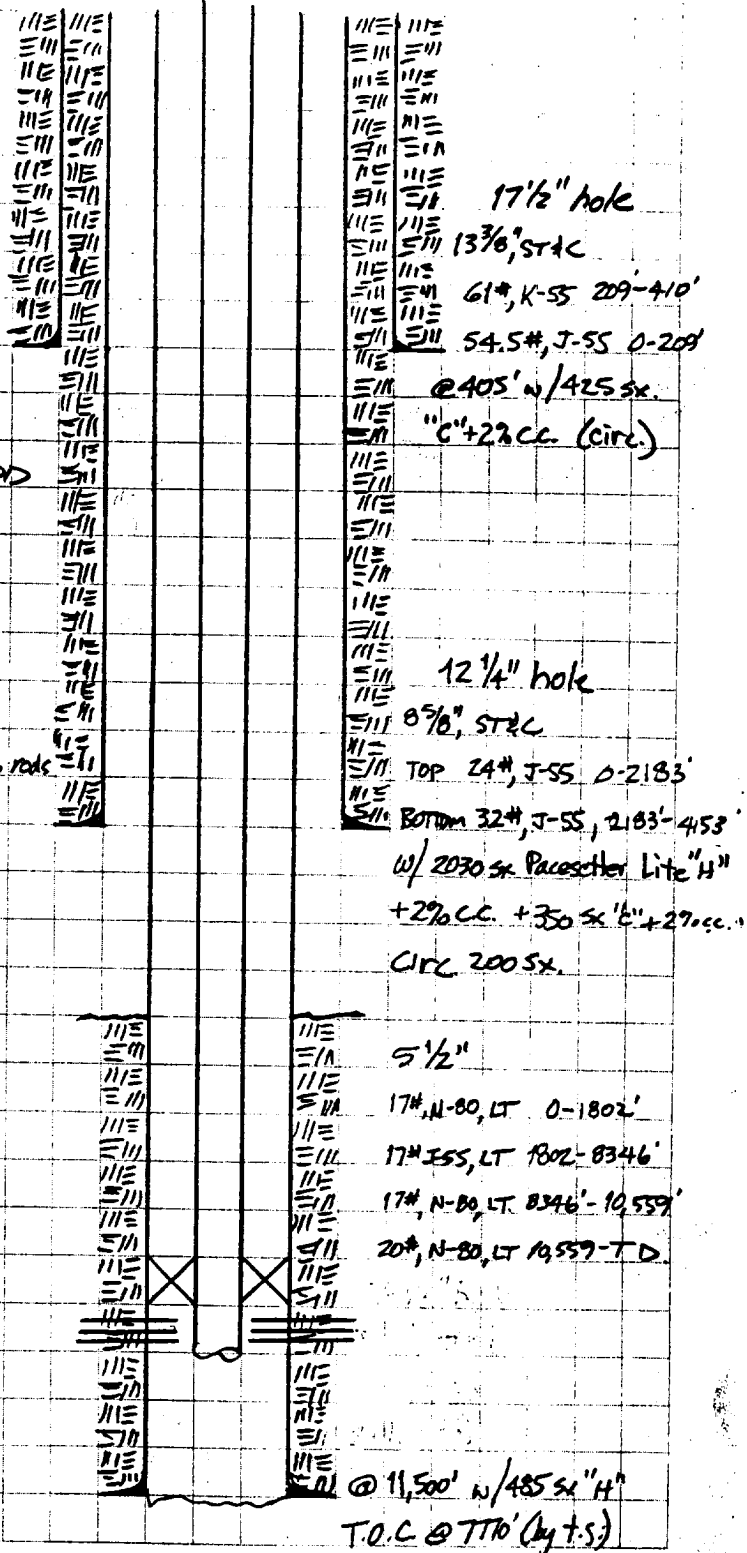 17 1/2" hole
13 3/8", ST&C
61#, K-55 209'-410'
54.5#, J-55 0-209'
@ 405' w/425 sx.
"C"+2% C.C. (circ.)
rods
12 1/4" hole
8 5/8", ST&C
TOP 24#, J-55 0-2183'
BOTTOM 32#, J-55, 2183'-4153'
w/ 2030 sx Pacesetter Lite "H"
+2% C.C. + 350 sx "C" + 2% c.c.
Circ 200 sx.
5 1/2"
17#, N-80, LT 0-1802'
17# J-55, LT 1802-8346'
17#, N-80, LT 8346'-10,559'
20#, N-80, LT 10,559-TD
@ 11,500' w/485 sx "H"
T.O.C. @ 7710' (by t.s.)